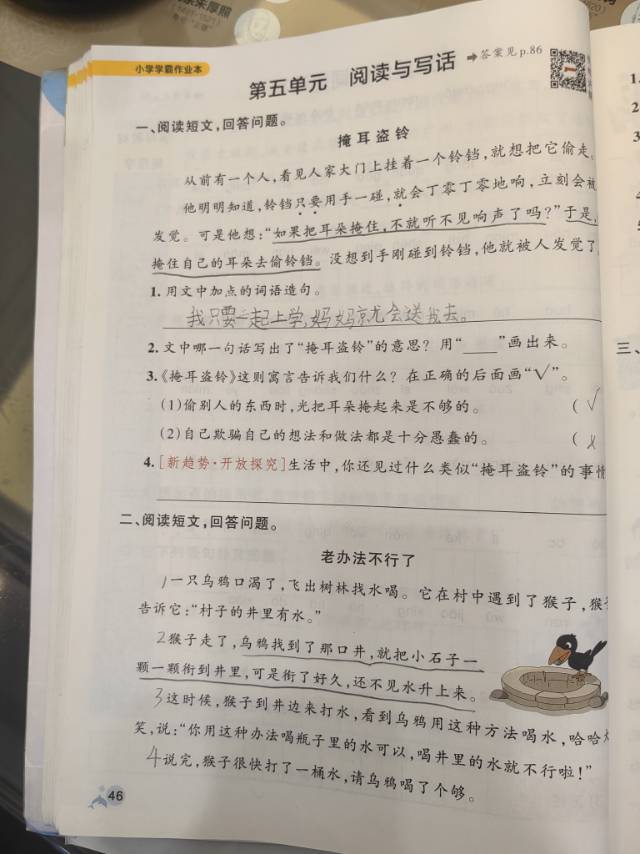 小学学霸作业本
第五单元 阅读与写话 ➡答案见p.86
一、阅读短文,回答问题。
掩耳盗铃
从前有一个人,看见人家大门上挂着一个铃铛,就想把它偷走。
他明明知道,铃铛只要用手一碰,就会丁零丁零地响,立刻会被
发觉。可是他想:“如果把耳朵掩住,不就听不见响声了吗?”于是,
掩住自己的耳朵去偷铃铛。没想到手刚碰到铃铛,他就被人发觉了
1. 用文中加点的词语造句。
我只要一起上学,妈妈就会送我去。
2. 文中哪一句话写出了“掩耳盗铃”的意思?用“____”画出来。
3.《掩耳盗铃》这则寓言告诉我们什么?在正确的后面画“√”。
(1)偷别人的东西时,光把耳朵掩起来是不够的。 (√
(2)自己欺骗自己的想法和做法都是十分愚蠢的。 (×
4. [新趋势·开放探究]生活中,你还见过什么类似“掩耳盗铃”的事情
二、阅读短文,回答问题。
老办法不行了
1一只乌鸦口渴了,飞出树林找水喝。它在村中遇到了猴子,猴
告诉它:“村子的井里有水。”
2猴子走了,乌鸦找到了那口井,就把小石子一
颗一颗衔到井里,可是衔了好久,还不见水升上来。
3这时候,猴子到井边来打水,看到乌鸦用这种方法喝水,哈哈
笑,说:“你用这种办法喝瓶子里的水可以,喝井里的水就不行啦!”
4说完,猴子很快打了一桶水,请乌鸦喝了个够。
46
1.
2
3
三、